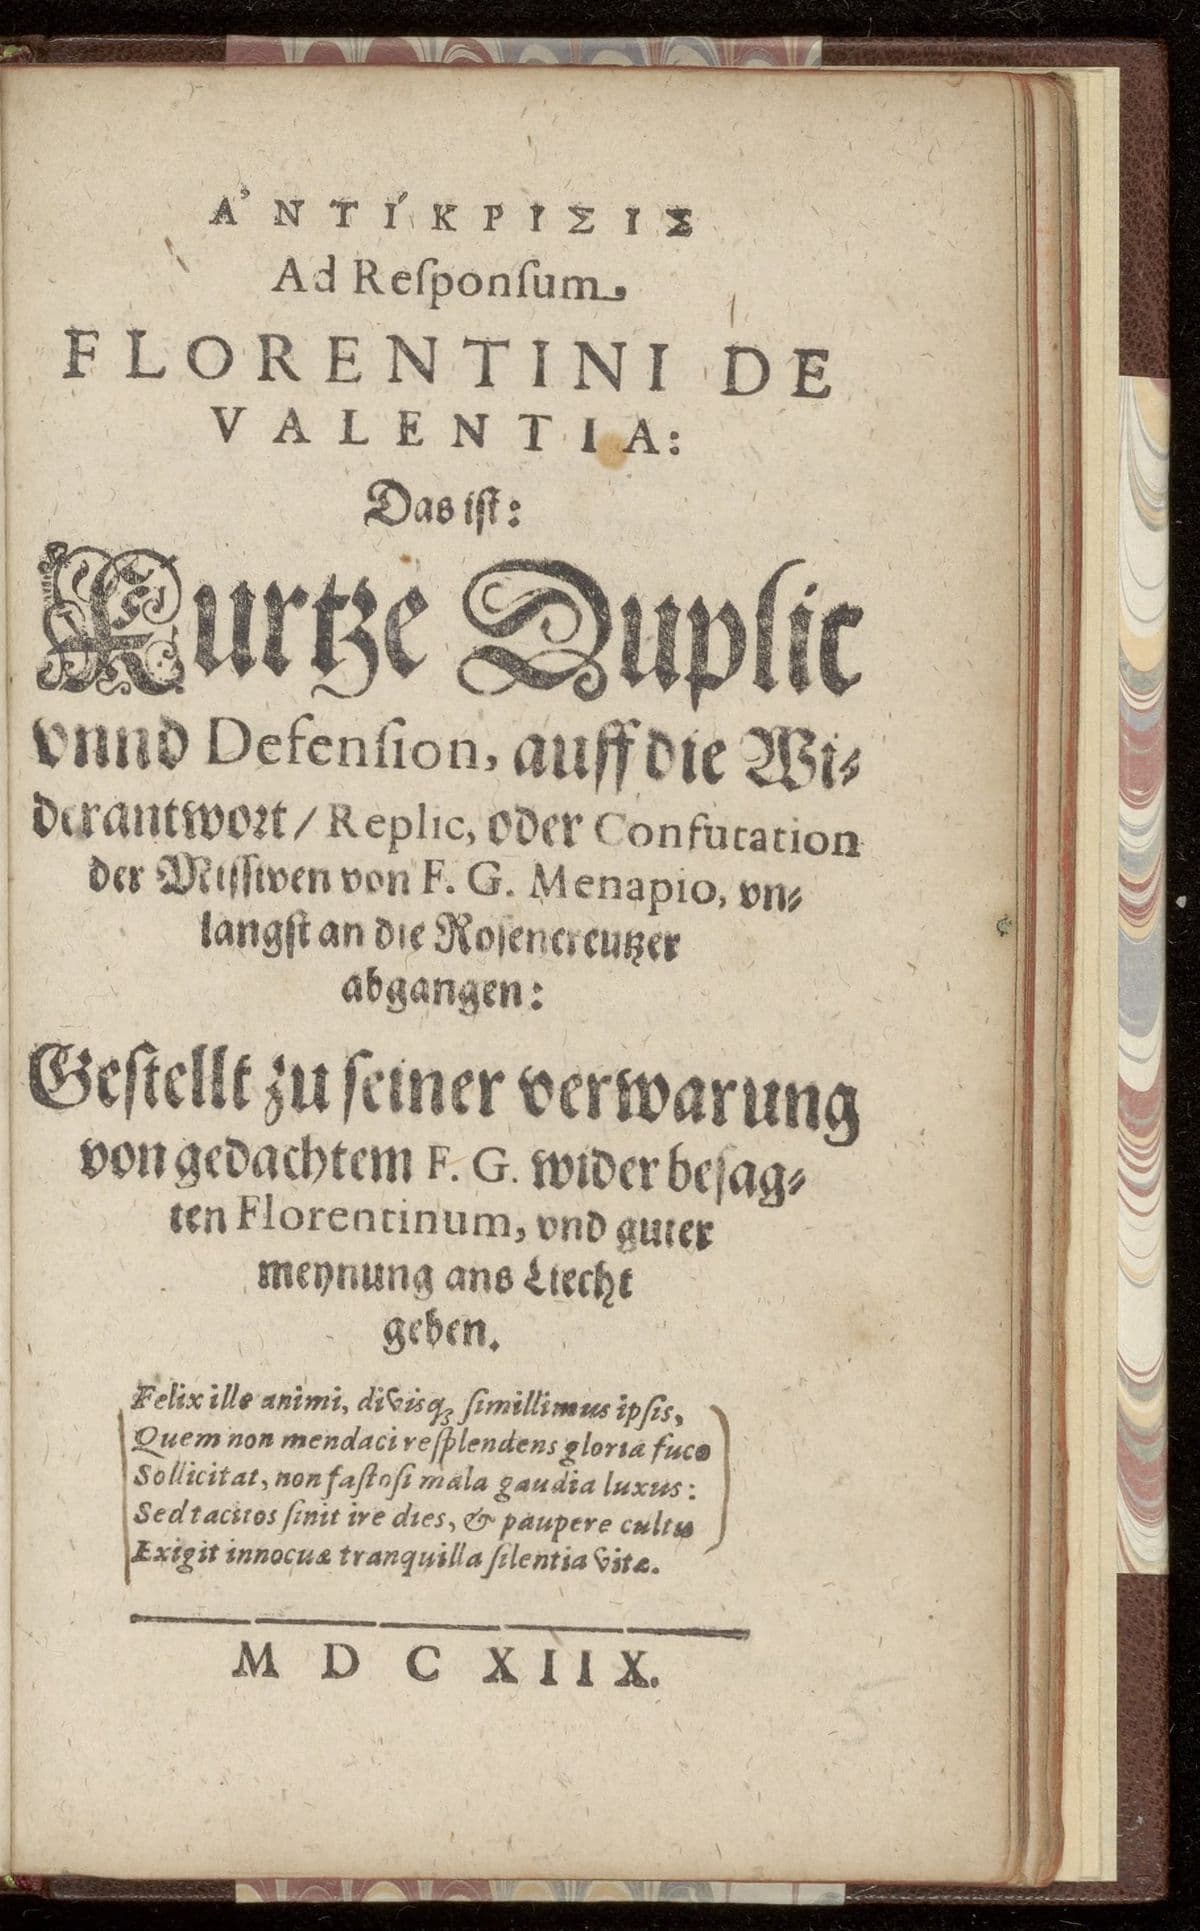 ἈΝΤΊΚΡΙΣΙΣ
Ad Reſponſum,
FLORENTINI DE
VALENTIA:
Das iſt:
Kurtze Duplic
vnnd Defenſion, auff die Wi⸗
derantwort / Replic, oder Confutation
der Miſſiven von F. G. Menapio, vn⸗
langſt an die Roſencreutzer
abgangen:
Geſtellt zu ſeiner verwarung
von gedachtem F. G. wider beſag⸗
ten Florentinum, vnd guter
meynung ans Liecht
geben.
Felix ille animi, divisq́; ſimillimus ipſis,
Quem non mendaci reſplendens gloria fuco
Sollicitat, non faſtoſi mala gaudia luxus:
Sed tacitos ſinit ire dies, & paupere cultu
Exigit innocuæ tranquilla ſilentia vitæ.
MDCXIIX.